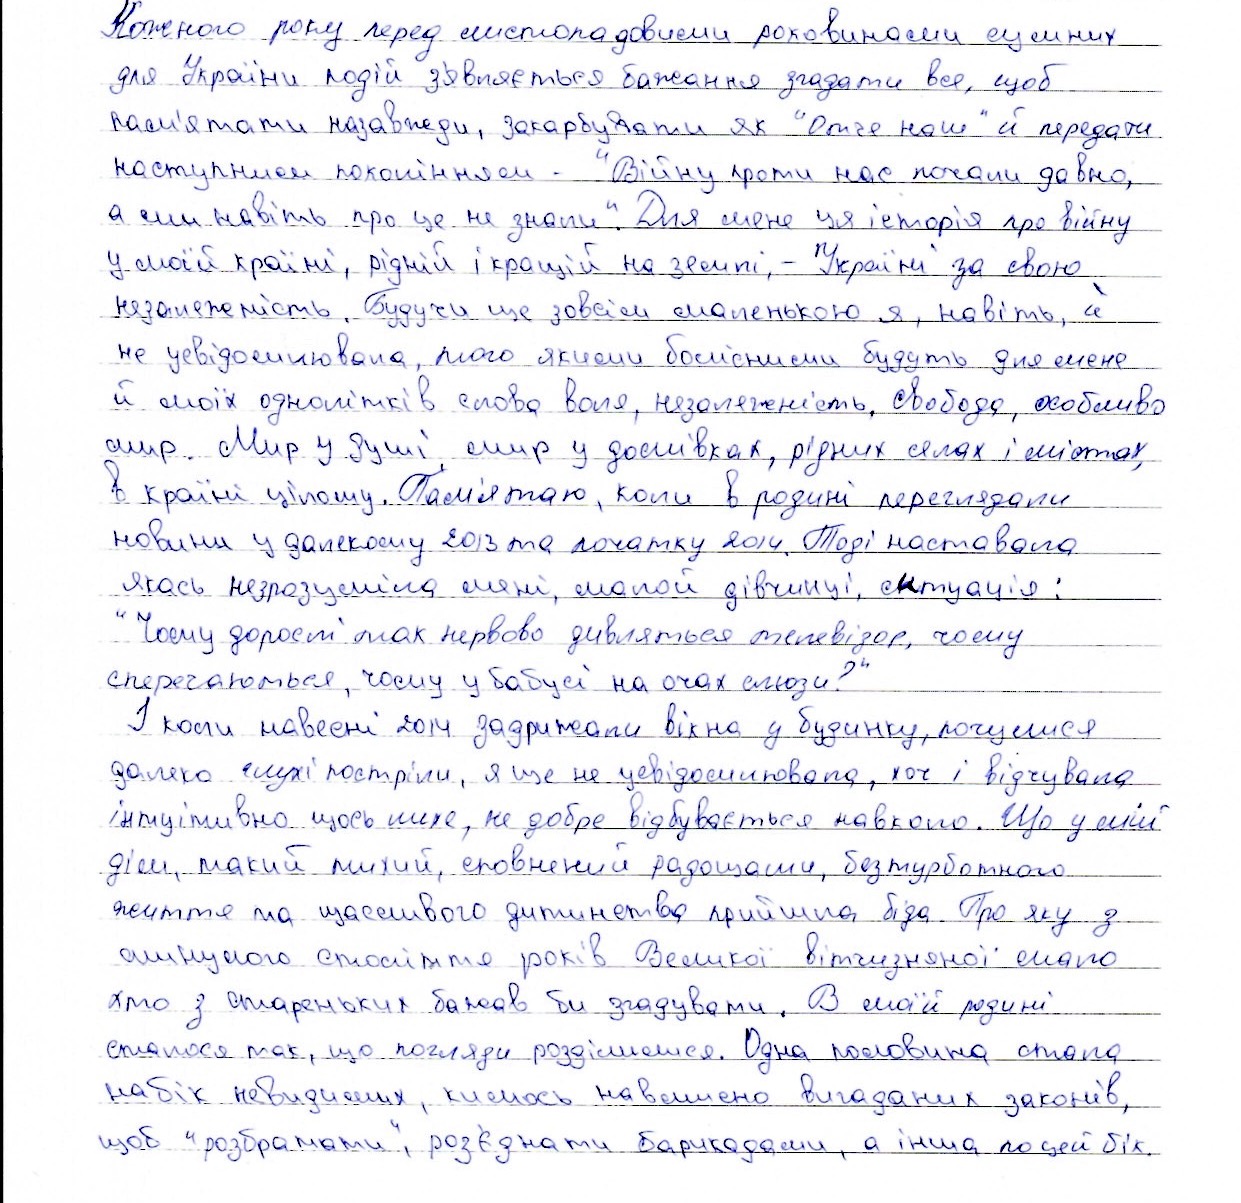 Кожного року перед листопадовими роковинами сумних
для України подій з'являється бажання згадати все, щоб
пам'ятати назавжди, закарбувати як "Отче наш" й передати
наступним поколінням - "Війну проти нас почали давно,
а ми навіть про це не знали". Для мене ця історія про війну
у моїй країні, рідній і кращій на землі, - "Україні за свою
незалежність. Будучи ще зовсім маленькою я, навіть, й
не усвідомлювала, того якими болісними будуть для мене
й моїх однолітків слова воля, незалежність, свобода, особливо
мир. Мир у душі, мир у домівках, рідних селах і містах,
в країні цілому. Пам'ятаю, коли в родині переглядали
новини у далекому 2013 та початку 2014. Тоді наставала
якась незрозуміла мені, малой дівчинці, ситуація:
"Чому дорослі так нервово дивляться телевізор, чому
сперечаються, чому у бабусі на очах сльози?"
І коли навесні 2014 задрижали вікна у будинку, почулися
далеко глухі постріли, я ще не усвідомлювала, хоч і відчувала
інтуітивно щось лихе, не добре відбувається навколо. Що у мій
дім, такий тихий, сповнений радощами, безтурботного
життя та щасливого дитинства прийшла біда. Про яку з
минулого століття років Великої вітчизняної мало
хто з стареньких бажав би згадувати. В моїй родині
сталося так, що погляди розділилися. Одна половина стала
набік невидимих, кимось навмисно вигаданих законів,
щоб "розбратати", роз'єднати барикадами, а інша по цей бік.